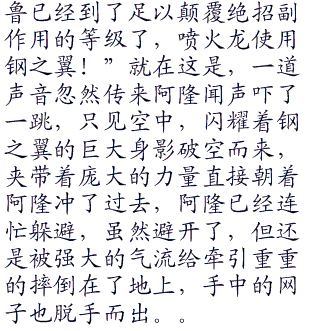 鲁已经到了足以颠覆绝招副
作用的等级了，喷火龙使用
钢之翼！”就在这是，一道
声音忽然传来阿隆闻声吓了
一跳，只见空中，闪耀着钢
之翼的巨大身影破空而来，
夹带着庞大的力量直接朝着
阿隆冲了过去，阿隆已经连
忙躲避，虽然避开了，但还
是被强大的气流给牵引重重
的摔倒在了地上，手中的网
子也脱手而出。。